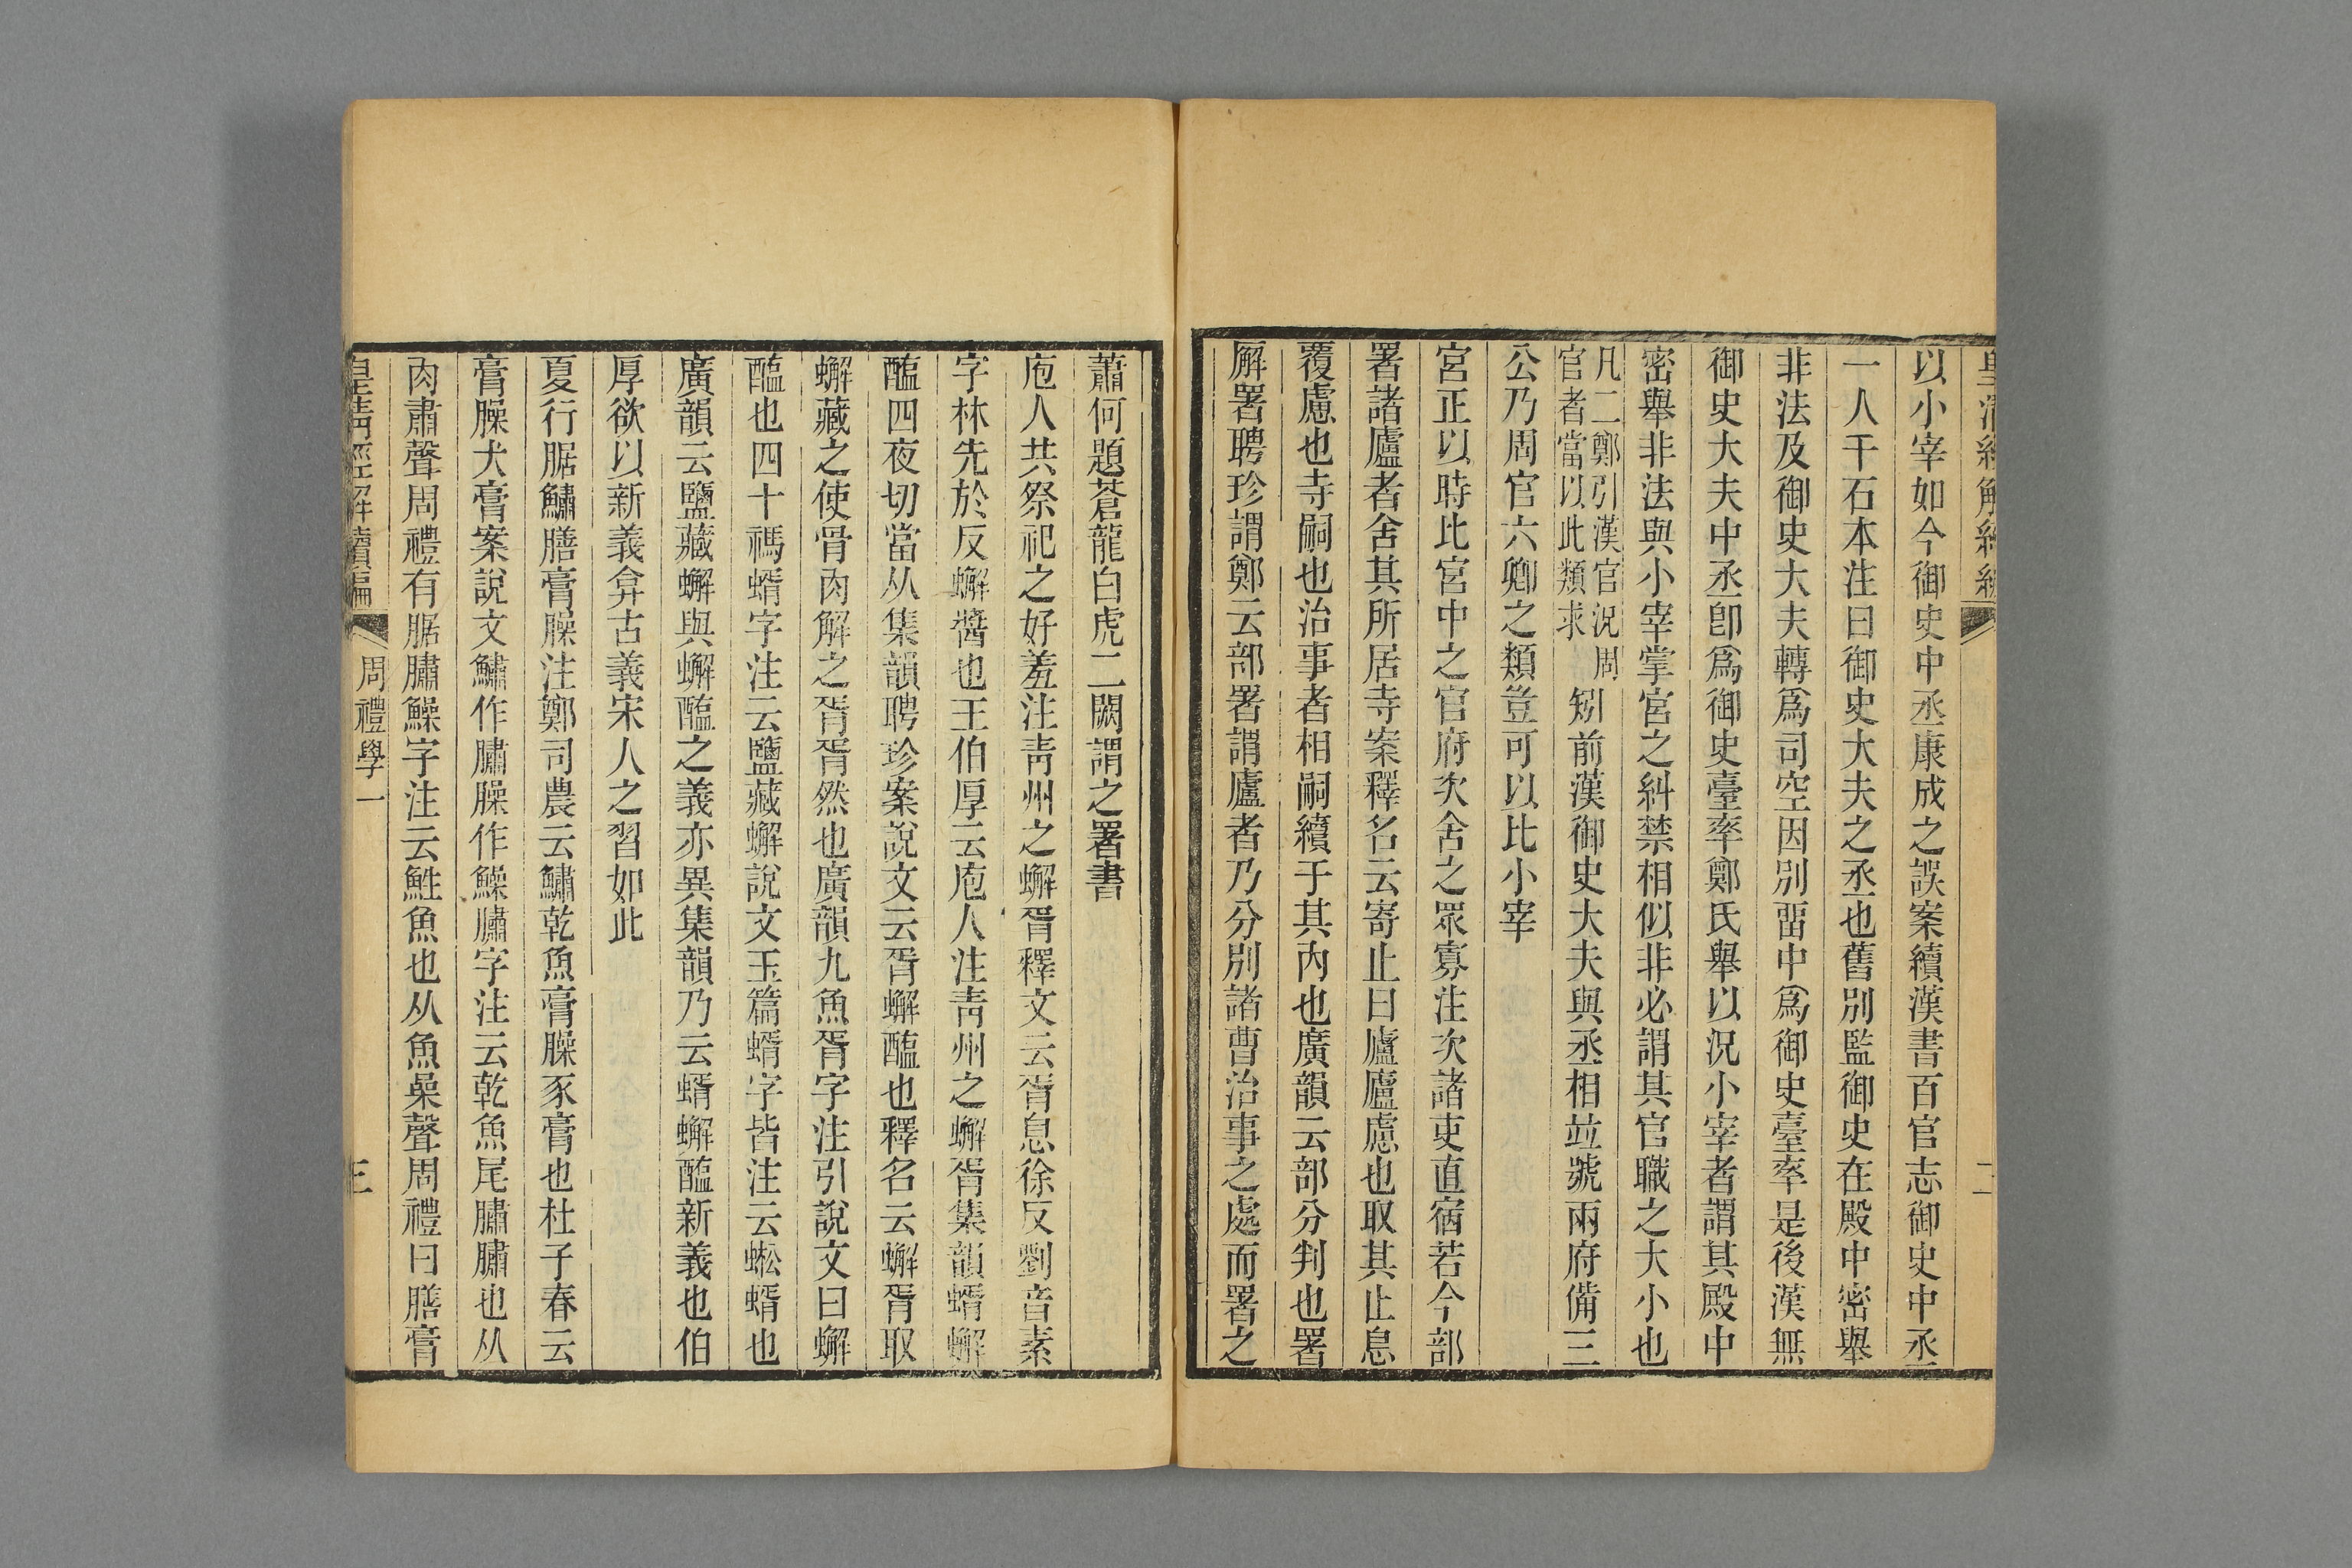 皇清經解續編
二
以小宰如今御史中丞康成之誤案續漢書百官志御史中丞
一人千石本注曰御史大夫之丞也舊別監御史在殿中密舉
非法及御史大夫轉爲司空因別畱中爲御史臺率是後漢無
御史大夫中丞卽爲御史臺率鄭氏舉以況小宰者謂其殿中
密舉非法與小宰掌宮之糾禁相似非必謂其官職之大小也
凡二鄭引漢官況周官者當以此類求矧前漢御史大夫與丞相竝號兩府備三
公乃周官六卿之類豈可以比小宰
宮正以時比宮中之官府次舍之眾寡注次諸吏直宿若今部
署諸廬者舍其所居寺案釋名云寄止曰廬廬慮也取其止息
覆慮也寺嗣也治事者相嗣續于其內也廣韻云部分判也署
廨署聘珍謂鄭云部署謂廬者乃分別諸曹治事之處而署之
蕭何題蒼龍白虎二闕謂之署書
庖人共祭祀之好羞注靑州之蠏胥釋文云胥息徐反劉音素
字林先於反蠏醬也王伯厚云庖人注靑州之蠏胥集韻蝑蠏
醢四夜切當从集韻聘珍案說文云胥蠏醢也釋名云蠏胥取
蠏藏之使骨肉解之胥胥然也廣韻九魚胥字注引說文曰蠏
醢也四十禡蝑字注云鹽藏蠏說文玉篇蝑字皆注云蜙蝑也
廣韻云鹽藏蠏與蠏醢之義亦異集韻乃云蝑蠏醢新義也伯
厚欲以新義弇古義宋人之習如此
夏行腒鱐膳膏臊注鄭司農云鱐乾魚膏臊豕膏也杜子春云
膏臊犬膏案說文鱐作䐹臊作鱢䐹字注云乾魚尾䐹䐹也从
肉肅聲周禮有腒䐹鱢字注云鮏魚也从魚喿聲周禮曰膳膏
皇清經解續編
周禮學一
三